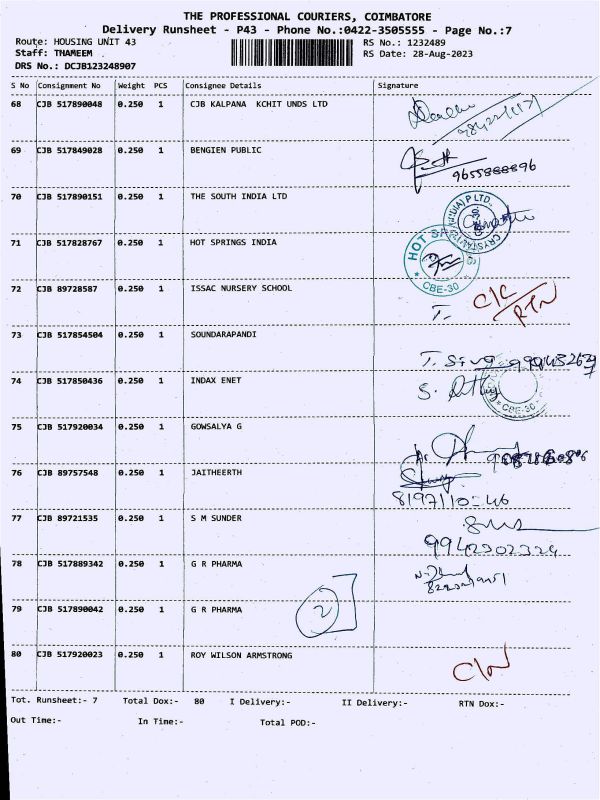 THE PROFESSIONAL COURIERS, COIMBATORE
Delivery Runsheet - P43 - Phone No.:0422-3505555 - Page No.:7
Route: HOUSING UNIT 43 RS No.: 1232489
Staff: THAMEEM RS Date: 28-Aug-2023
DRS No.: DCJB123248907
S No Consignment No Weight PCS Consignee Details Signature
68 CJB 517890048 0.250 1 CJB KALPANA KCHIT UNDS LTD
69 CJB 517849028 0.250 1 BENGIEN PUBLIC
9655888896
70 CJB 517890151 0.250 1 THE SOUTH INDIA LTD
71 CJB 517828767 0.250 1 HOT SPRINGS INDIA
HOT
CBE-30
72 CJB 89728587 0.250 1 ISSAC NURSERY SCHOOL
C/C
RTN
73 CJB 517854504 0.250 1 SOUNDARAPANDI
74 CJB 517850436 0.250 1 INDAX ENET
CBE-30
75 CJB 517920034 0.250 1 GOWSALYA G
76 CJB 89757548 0.250 1 JAITHEERTH
77 CJB 89721535 0.250 1 S M SUNDER
9942302324
78 CJB 517889342 0.250 1 G R PHARMA
79 CJB 517890042 0.250 1 G R PHARMA
2
80 CJB 517920023 0.250 1 ROY WILSON ARMSTRONG
Tot. Runsheet:- 7 Total Dox:- 80 I Delivery:- II Delivery:- RTN Dox:-
Out Time:- In Time:- Total POD:-